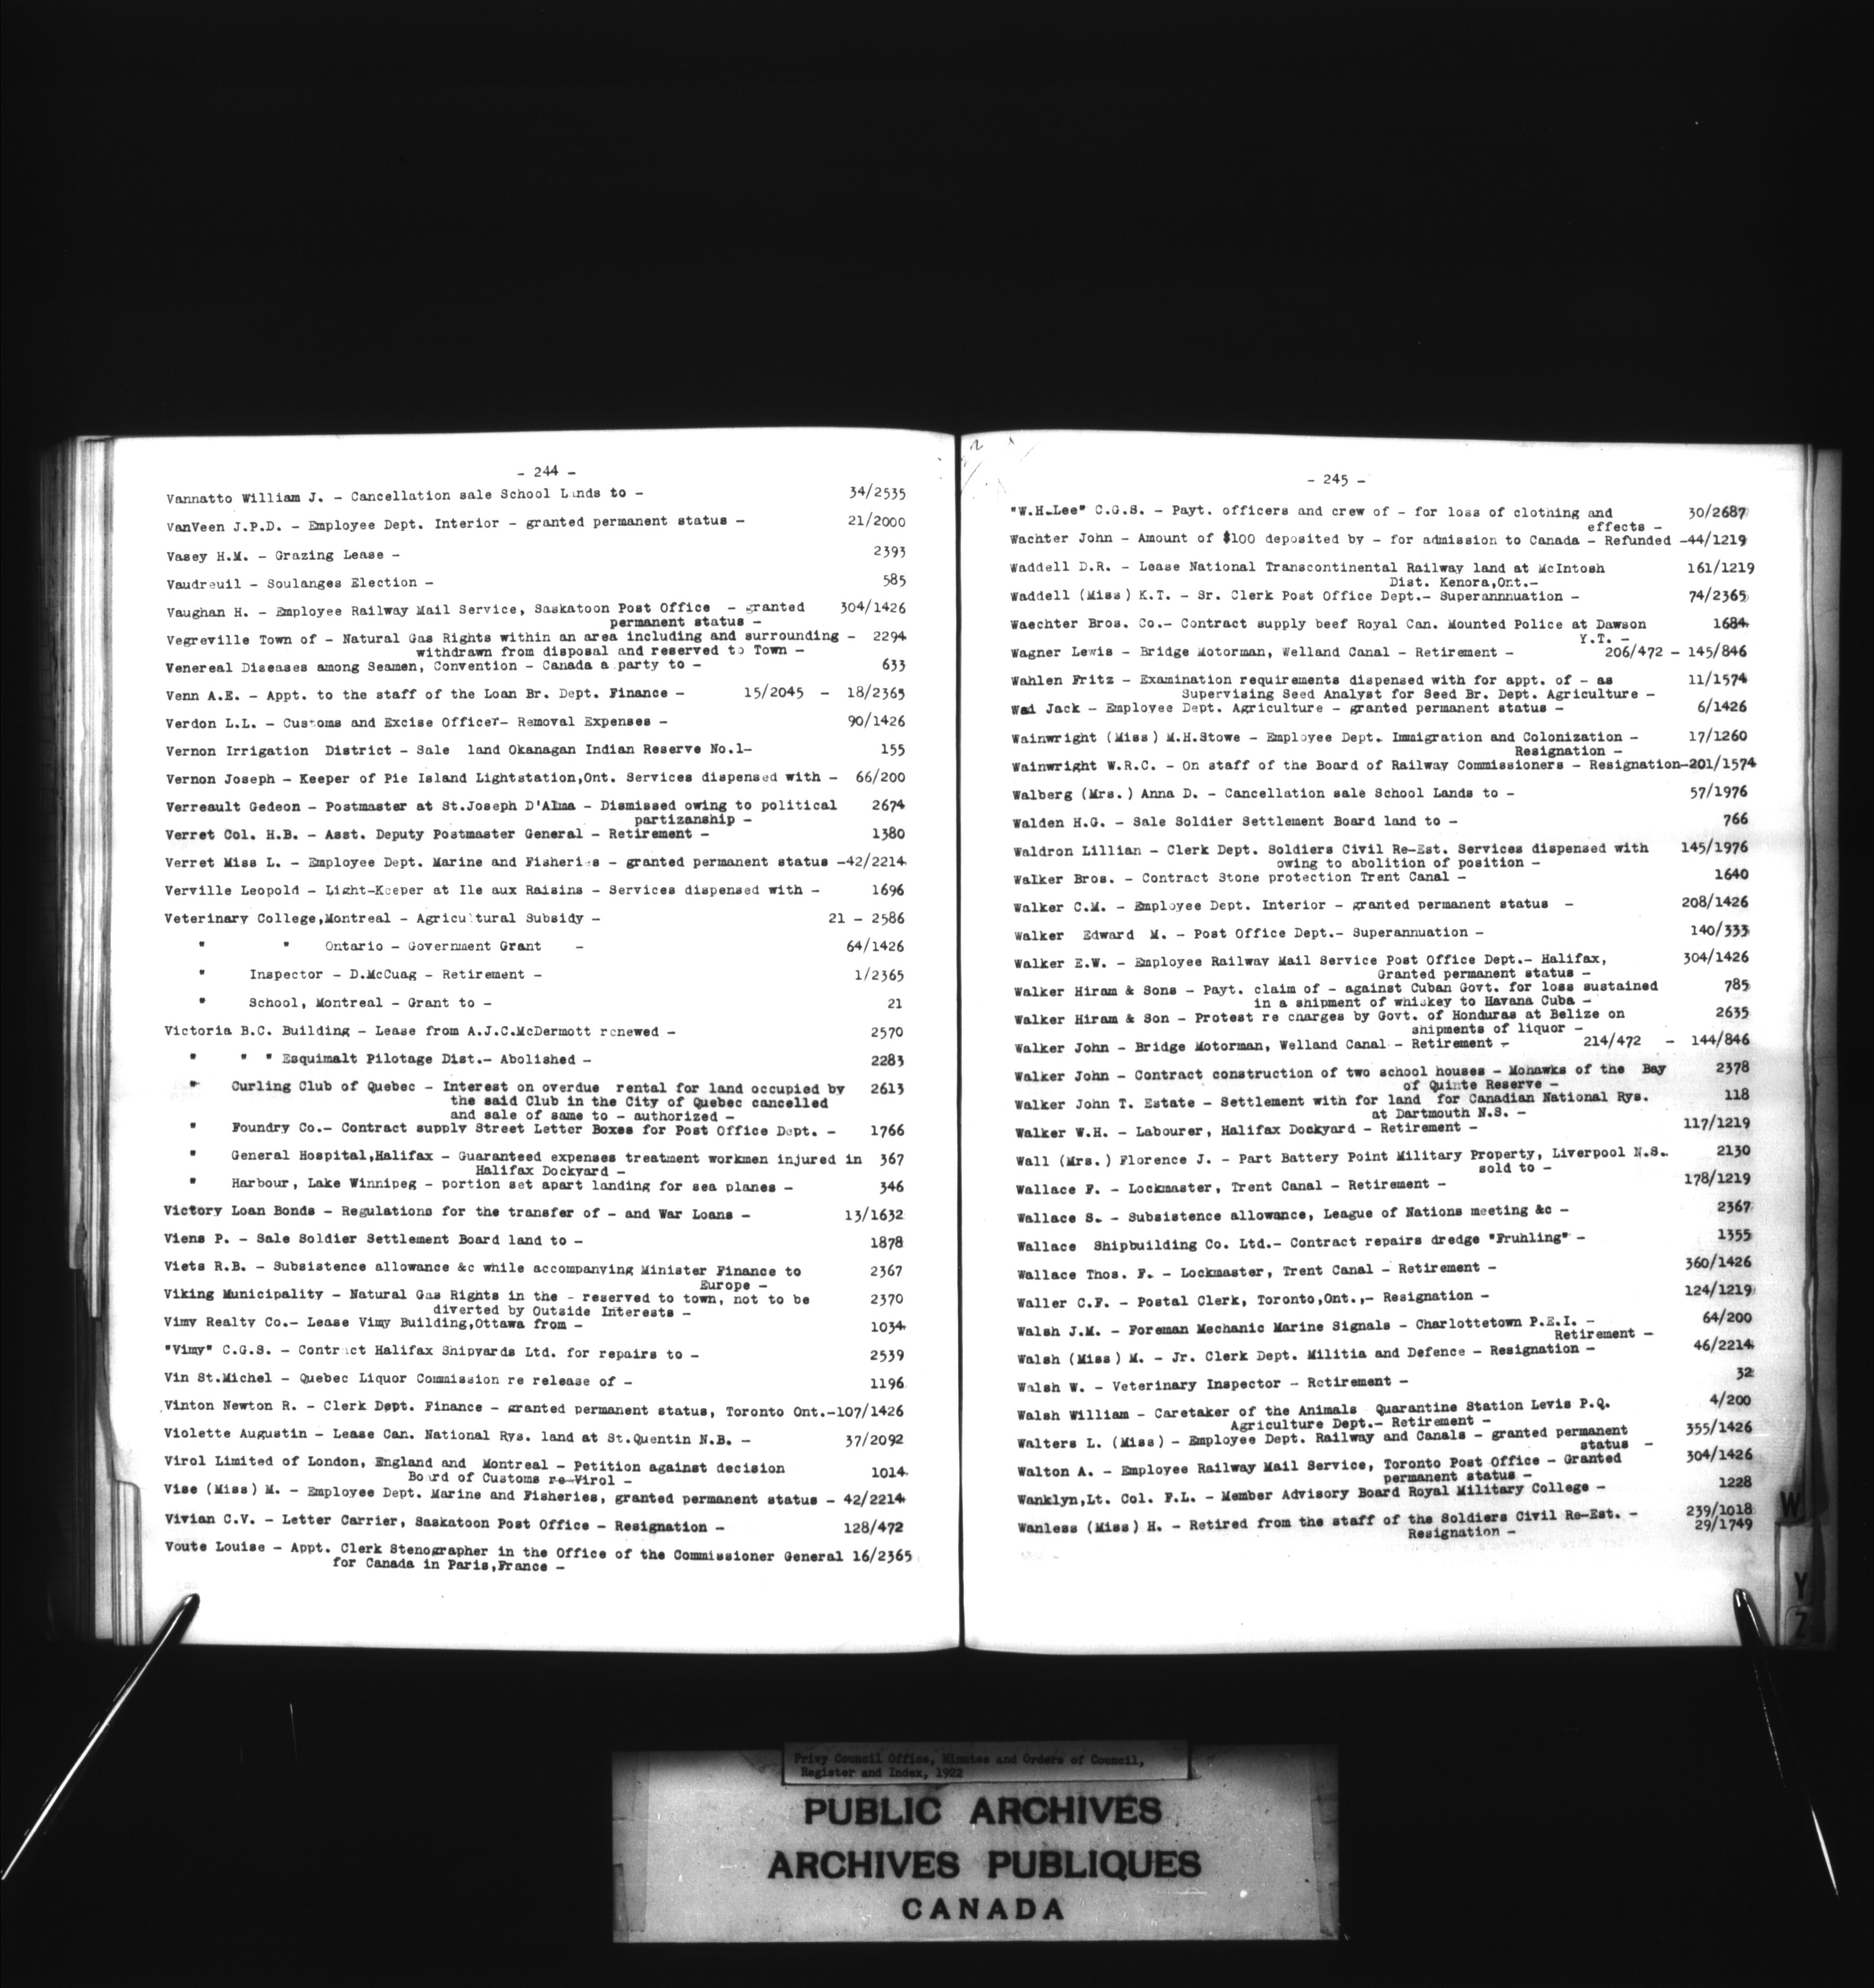 - 244 -
Vannatto William J. - Cancellation sale School Lands to - 34/2535
VanVeen J.P.D. - Employee Dept. Interior - granted permanent status - 21/2000
Vasey H.M. - Grazing Lease - 2393
Vaudreuil - Soulanges Election - 585
Vaughan H. - Employee Railway Mail Service, Saskatoon Post Office - granted 304/1426
permanent status -
Vegreville Town of - Natural Gas Rights within an area including and surrounding - 2294
withdrawn from disposal and reserved to Town -
Venereal Diseases among Seamen, Convention - Canada a party to - 633
Venn A.E. - Appt. to the staff of the Loan Br. Dept. Finance - 15/2045 - 18/2365
Verdon L.L. - Customs and Excise Officer- Removal Expenses - 90/1426
Vernon Irrigation District - Sale land Okanagan Indian Reserve No.1- 155
Vernon Joseph - Keeper of Pie Island Lightstation,Ont. Services dispensed with - 66/200
Verreault Gedeon - Postmaster at St.Joseph D'Alma - Dismissed owing to political 2674
partizanship -
Verret Col. H.B. - Asst. Deputy Postmaster General - Retirement - 1380
Verret Miss L. - Employee Dept. Marine and Fisheries - granted permanent status -42/2214
Verville Leopold - Light-Keeper at Ile aux Raisins - Services dispensed with - 1696
Veterinary College,Montreal - Agricultural Subsidy - 21 - 2586
" " Ontario - Government Grant - 64/1426
" Inspector - D.McCuag - Retirement - 1/2365
" School, Montreal - Grant to - 21
Victoria B.C. Building - Lease from A.J.C.McDermott renewed - 2570
" " " Esquimalt Pilotage Dist.- Abolished - 2283
" Curling Club of Quebec - Interest on overdue rental for land occupied by 2613
the said Club in the City of Quebec cancelled
and sale of same to - authorized -
" Foundry Co.- Contract supply Street Letter Boxes for Post Office Dept. - 1766
" General Hospital,Halifax - Guaranteed expenses treatment workmen injured in 367
Halifax Dockyard -
" Harbour, Lake Winnipeg - portion set apart landing for sea planes - 346
Victory Loan Bonds - Regulations for the transfer of - and War Loans - 13/1632
Viens P. - Sale Soldier Settlement Board land to - 1878
Viets R.B. - Subsistence allowance &c while accompanying Minister Finance to 2367
Europe -
Viking Municipality - Natural Gas Rights in the - reserved to town, not to be 2370
diverted by Outside Interests -
Vimy Realty Co.- Lease Vimy Building,Ottawa from - 1034
"Vimy" C.G.S. - Contract Halifax Shipyards Ltd. for repairs to - 2539
Vin St.Michel - Quebec Liquor Commission re release of - 1196
Vinton Newton R. - Clerk Dept. Finance - granted permanent status, Toronto Ont.-107/1426
Violette Augustin - Lease Can. National Rys. land at St.Quentin N.B. - 37/2092
Virol Limited of London, England and Montreal - Petition against decision 1014
Board of Customs re-Virol -
Vise (Miss) M. - Employee Dept. Marine and Fisheries, granted permanent status - 42/2214
Vivian C.V. - Letter Carrier, Saskatoon Post Office - Resignation - 128/472
Voute Louise - Appt. Clerk Stenographer in the Office of the Commissioner General 16/2365
for Canada in Paris,France -
- 245 -
"W.H.Lee" C.G.S. - Payt. officers and crew of - for loss of clothing and 30/2687
effects -
Wachter John - Amount of $100 deposited by - for admission to Canada - Refunded -44/1219
Waddell D.R. - Lease National Transcontinental Railway land at McIntosh 161/1219
Dist. Kenora,Ont.-
Waddell (Miss) K.T. - Sr. Clerk Post Office Dept.- Superannnuation - 74/2365
Waechter Bros. Co.- Contract supply beef Royal Can. Mounted Police at Dawson 1684
Y.T. -
Wagner Lewis - Bridge Motorman, Welland Canal - Retirement - 206/472 - 145/846
Wahlen Fritz - Examination requirements dispensed with for appt. of - as 11/1574
Supervising Seed Analyst for Seed Br. Dept. Agriculture -
Wai Jack - Employee Dept. Agriculture - granted permanent status - 6/1426
Wainwright (Miss) M.H.Stowe - Employee Dept. Immigration and Colonization - 17/1260
Resignation -
Wainwright W.R.C. - On staff of the Board of Railway Commissioners - Resignation-201/1574
Walberg (Mrs.) Anna D. - Cancellation sale School Lands to - 57/1976
Walden H.G. - Sale Soldier Settlement Board land to - 766
Waldron Lillian - Clerk Dept. Soldiers Civil Re-Est. Services dispensed with 145/1976
owing to abolition of position -
Walker Bros. - Contract Stone protection Trent Canal - 1640
Walker C.M. - Employee Dept. Interior - granted permanent status - 208/1426
Walker Edward M. - Post Office Dept.- Superannuation - 140/333
Walker E.W. - Employee Railway Mail Service Post Office Dept.- Halifax, 304/1426
Granted permanent status -
Walker Hiram & Sons - Payt. claim of - against Cuban Govt. for loss sustained 785
in a shipment of whiskey to Havana Cuba -
Walker Hiram & Son - Protest re charges by Govt. of Honduras at Belize on 2635
shipments of liquor -
Walker John - Bridge Motorman, Welland Canal - Retirement - 214/472 - 144/846
Walker John - Contract construction of two school houses - Mohawks of the Bay 2378
of Quinte Reserve -
Walker John T. Estate - Settlement with for land for Canadian National Rys. 118
at Dartmouth N.S. -
Walker W.H. - Labourer, Halifax Dockyard - Retirement - 117/1219
Wall (Mrs.) Florence J. - Part Battery Point Military Property, Liverpool N.S. 2130
sold to -
Wallace F. - Lockmaster, Trent Canal - Retirement - 178/1219
Wallace S. - Subsistence allowance, League of Nations meeting &c - 2367
Wallace Shipbuilding Co. Ltd.- Contract repairs dredge "Fruhling" - 1355
Wallace Thos. F. - Lockmaster, Trent Canal - Retirement - 360/1426
Waller C.F. - Postal Clerk, Toronto,Ont.,- Resignation - 124/1219
Walsh J.M. - Foreman Mechanic Marine Signals - Charlottetown P.E.I. - 64/200
Retirement -
Walsh (Miss) M. - Jr. Clerk Dept. Militia and Defence - Resignation - 46/2214
Walsh W. - Veterinary Inspector - Retirement - 32
Walsh William - Caretaker of the Animals Quarantine Station Levis P.Q. 4/200
Agriculture Dept.- Retirement -
Walters L. (Miss) - Employee Dept. Railway and Canals - granted permanent 355/1426
status -
Walton A. - Employee Railway Mail Service, Toronto Post Office - Granted 304/1426
permanent status -
Wanklyn,Lt. Col. F.L. - Member Advisory Board Royal Military College - 1228
Wanless (Miss) H. - Retired from the staff of the Soldiers Civil Re-Est. - 239/1018
Resignation - 29/1749
W
Y
Z
Privy Council Office, Minutes and Orders of Council,
Register and Index, 1922
PUBLIC ARCHIVES
ARCHIVES PUBLIQUES
CANADA